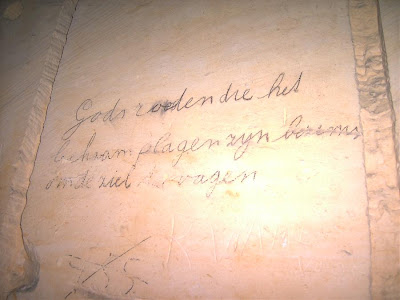 Gods roeden die het
lichaam plagen zyn bezems
om de ziel te vagen